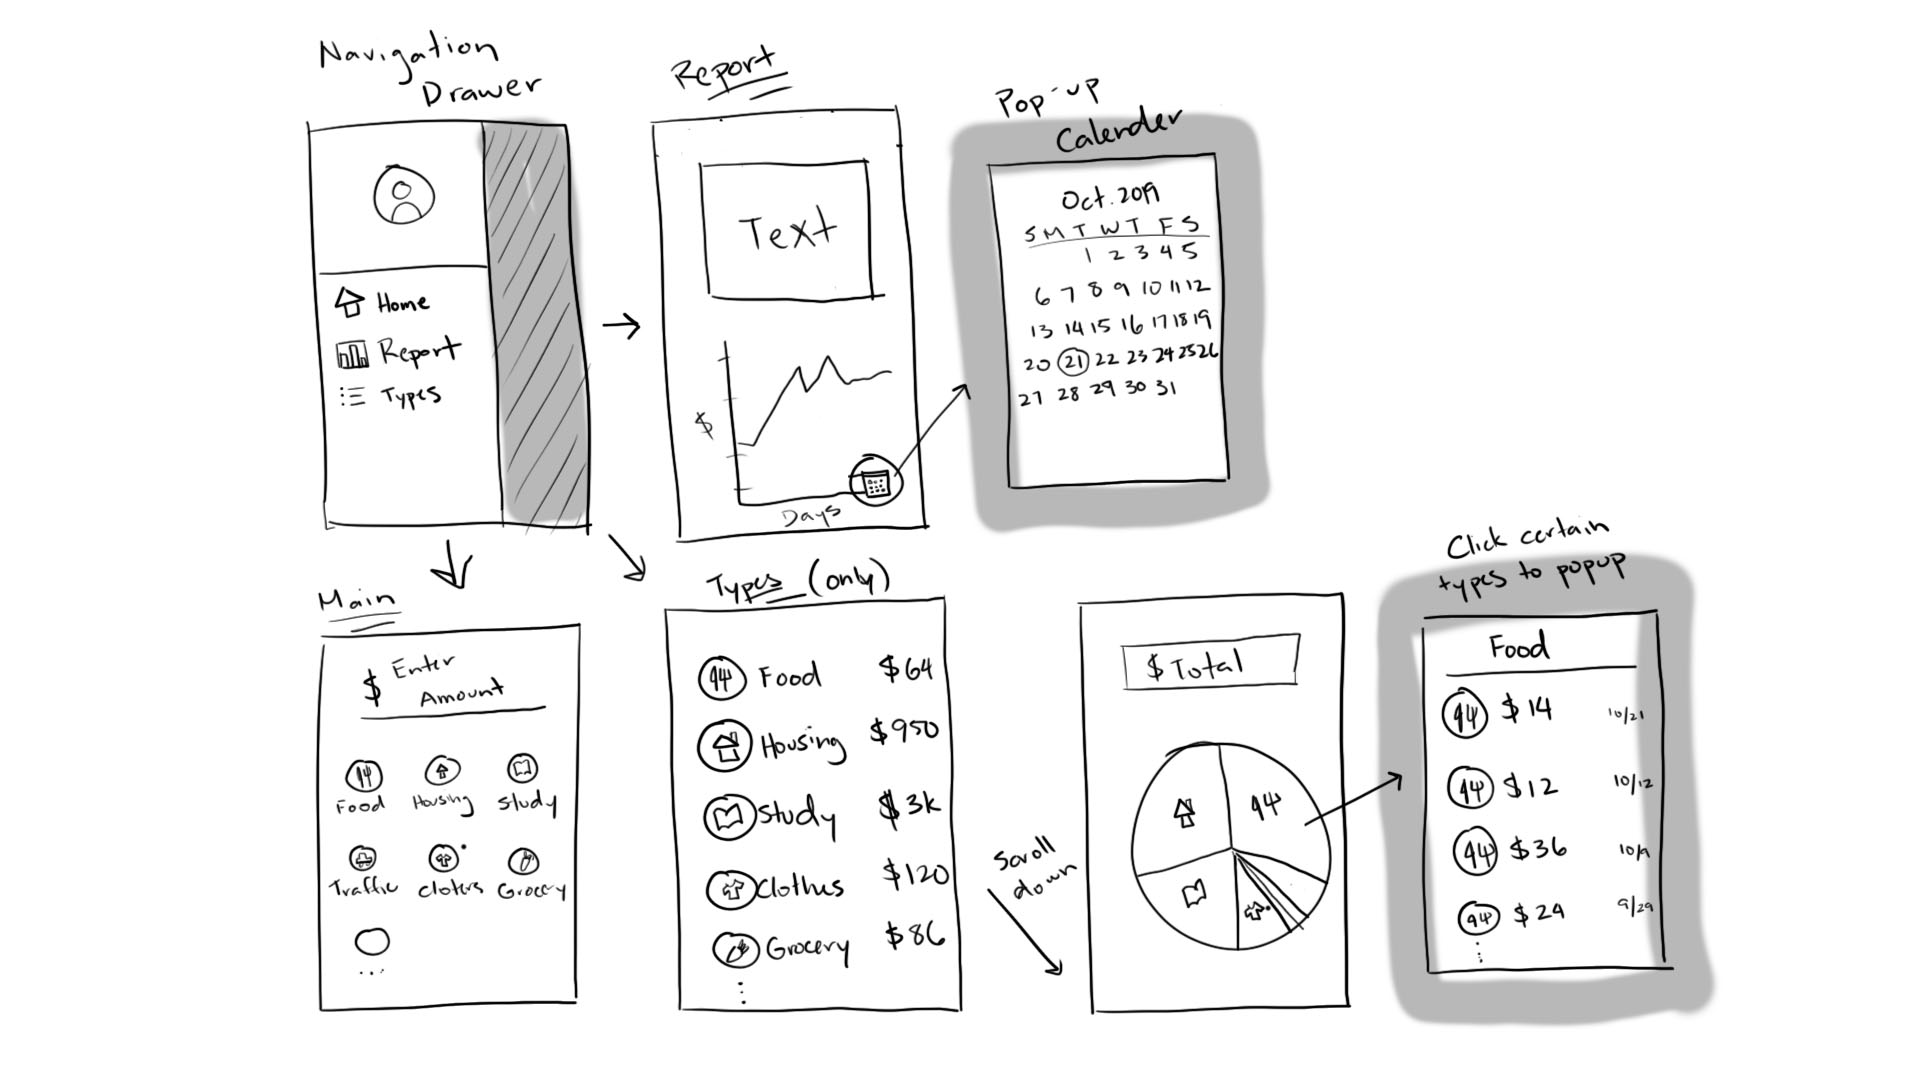 Navigation
Drawer
Home
Report
Types
Report
Text
$
Days
Pop-up
Calender
Oct. 2019
S M T W T F S
1 2 3 4 5
6 7 8 9 10 11 12
13 14 15 16 17 18 19
20 21 22 23 24 25 26
27 28 29 30 31
Main
$ Enter
Amount
Food Housing Study
Traffic Cloters Grocery
...
Types (only)
Food $64
Housing $950
Study $3k
Clothes $120
Grocery $86
Scroll
down
$ Total
Click certain
types to popup
Food
$14 10/21
$12 10/12
$36 10/9
$24 9/29